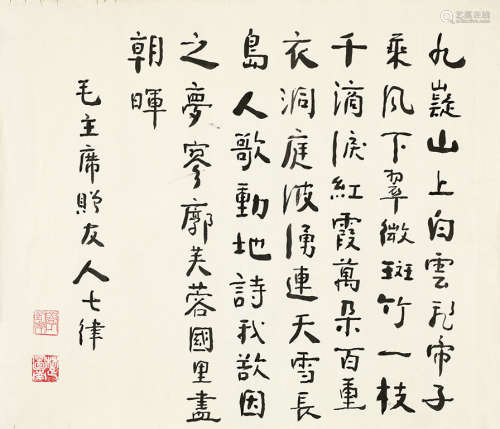 九嶷山上白雲飛帝子
乘风下翠微斑竹一枝
千滴淚紅霞萬朵百重
衣洞庭波湧連天雪長
島人歌動地詩我欲因
之夢寥廓芙蓉國里盡
朝暉
毛主席贈友人七律